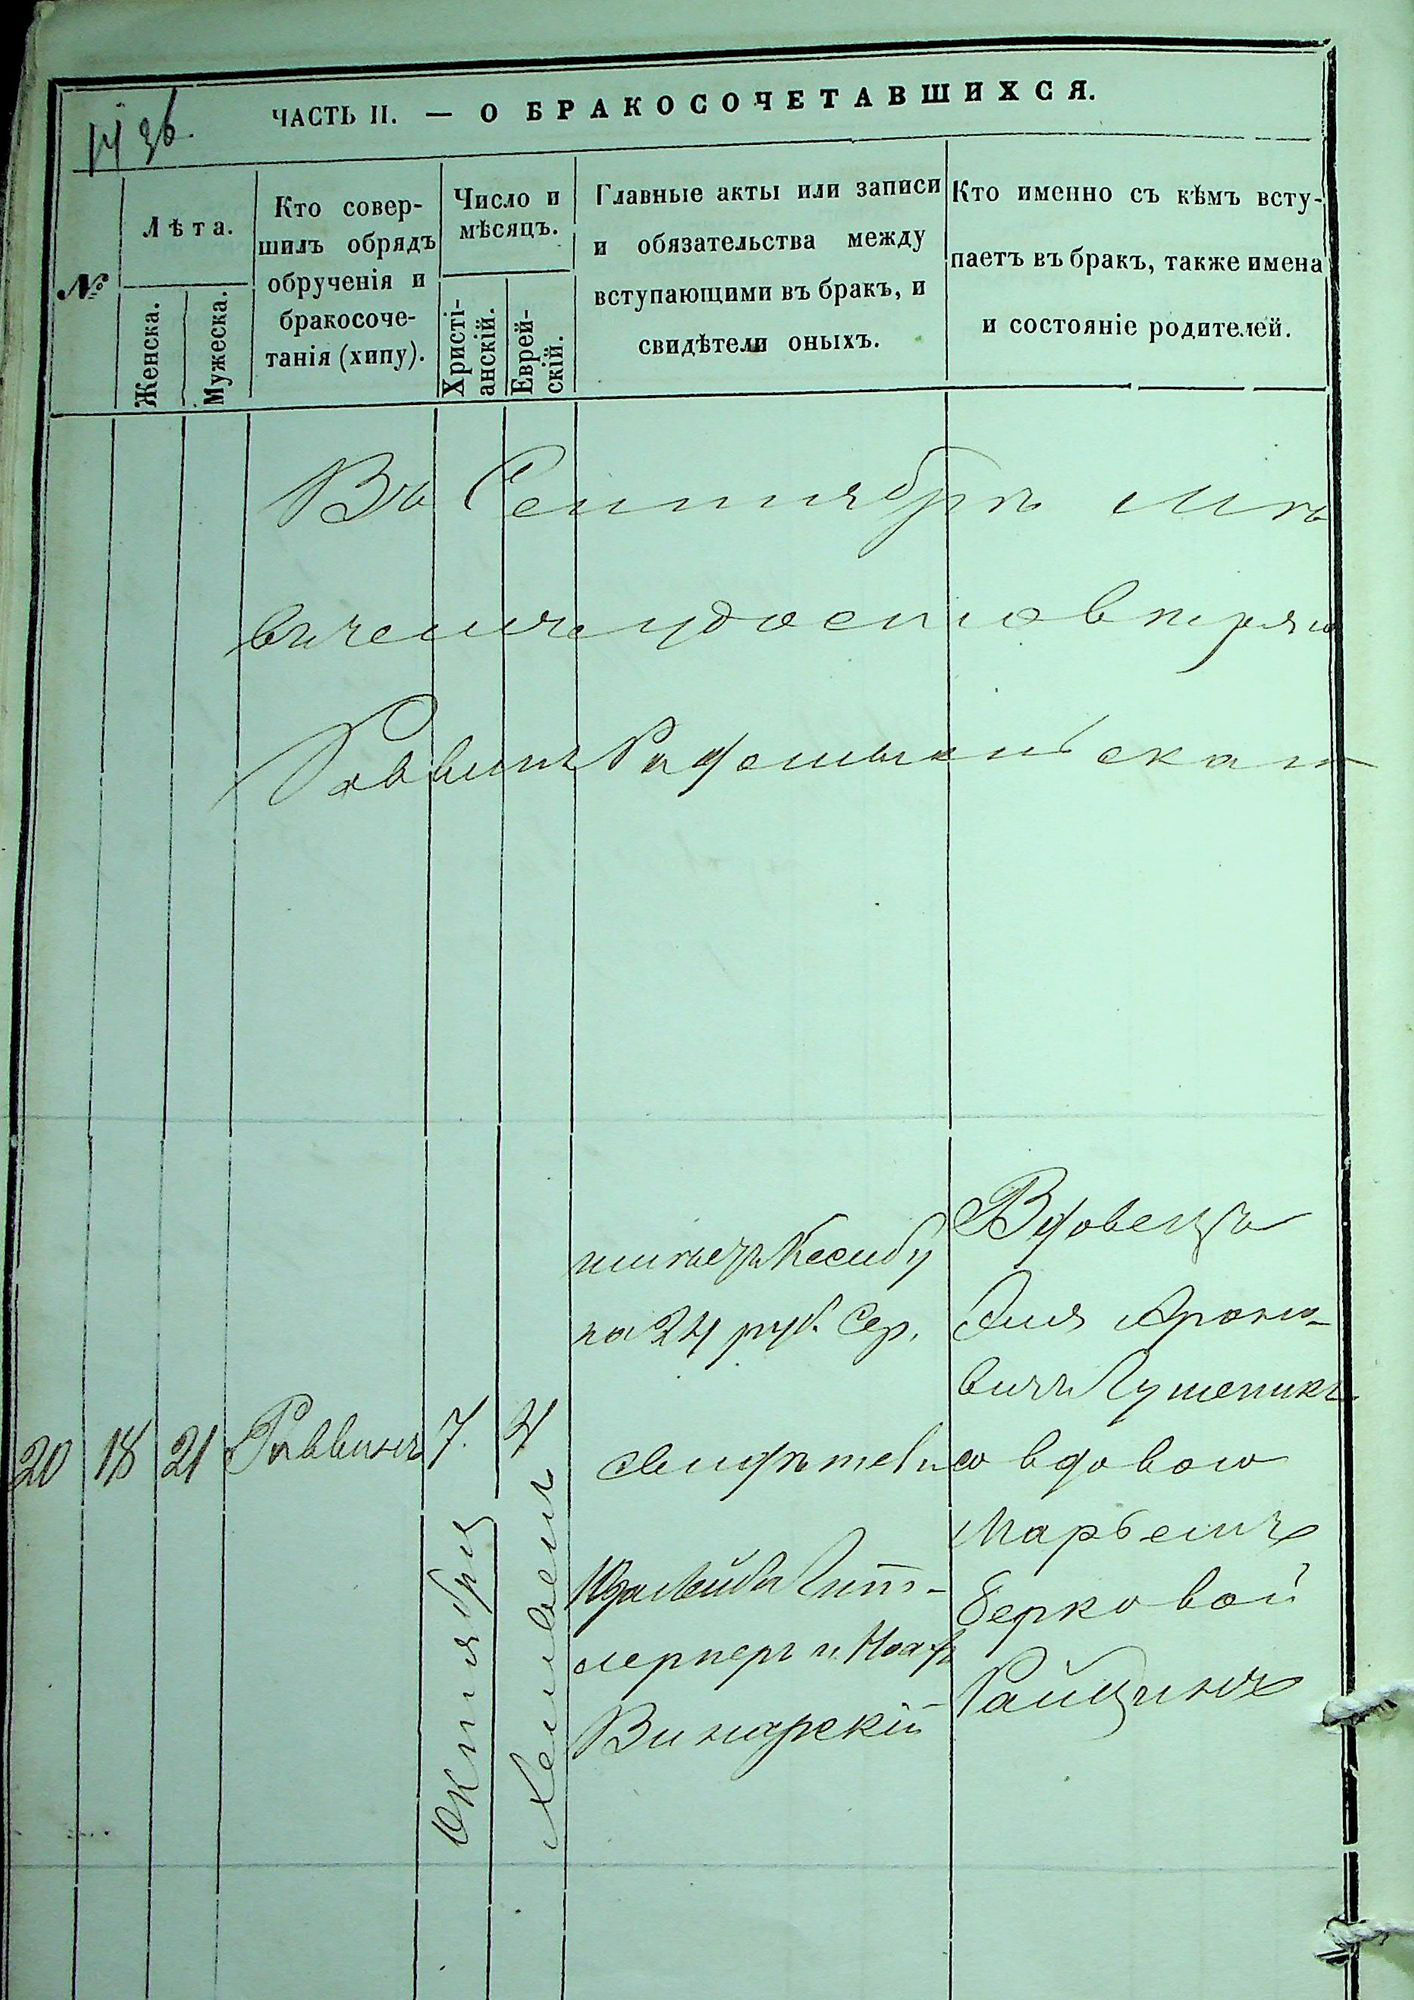 1436.
ЧАСТЬ II. — О БРАКОСОЧЕТАВШИХСЯ.
№
Лѣта.
Женска.
Мужеска.
Кто совер-
шилъ обрядъ
обрученія и
бракосоче-
танія (хипу).
Число и
мѣсяцъ.
Христі-
анскій.
Еврей-
скій.
Главные акты или записи
и обязательства между
вступающими въ бракъ, и
свидѣтели оныхъ.
Кто именно съ кѣмъ всту-
паетъ въ бракъ, также имена
и состояніе родителей.
Въ Сентябрѣ
въ чемъ удостовѣряю
Раввинъ
20
18
21
Раввинъ
7.
Октября
4
Хешвенъ
Кесибу
на 24 руб. Сер.
свидѣтели
и
Винарскій
Вдовецъ
Эля Ароно-
вичъ
со вдовою
Марьемъ
Берковой